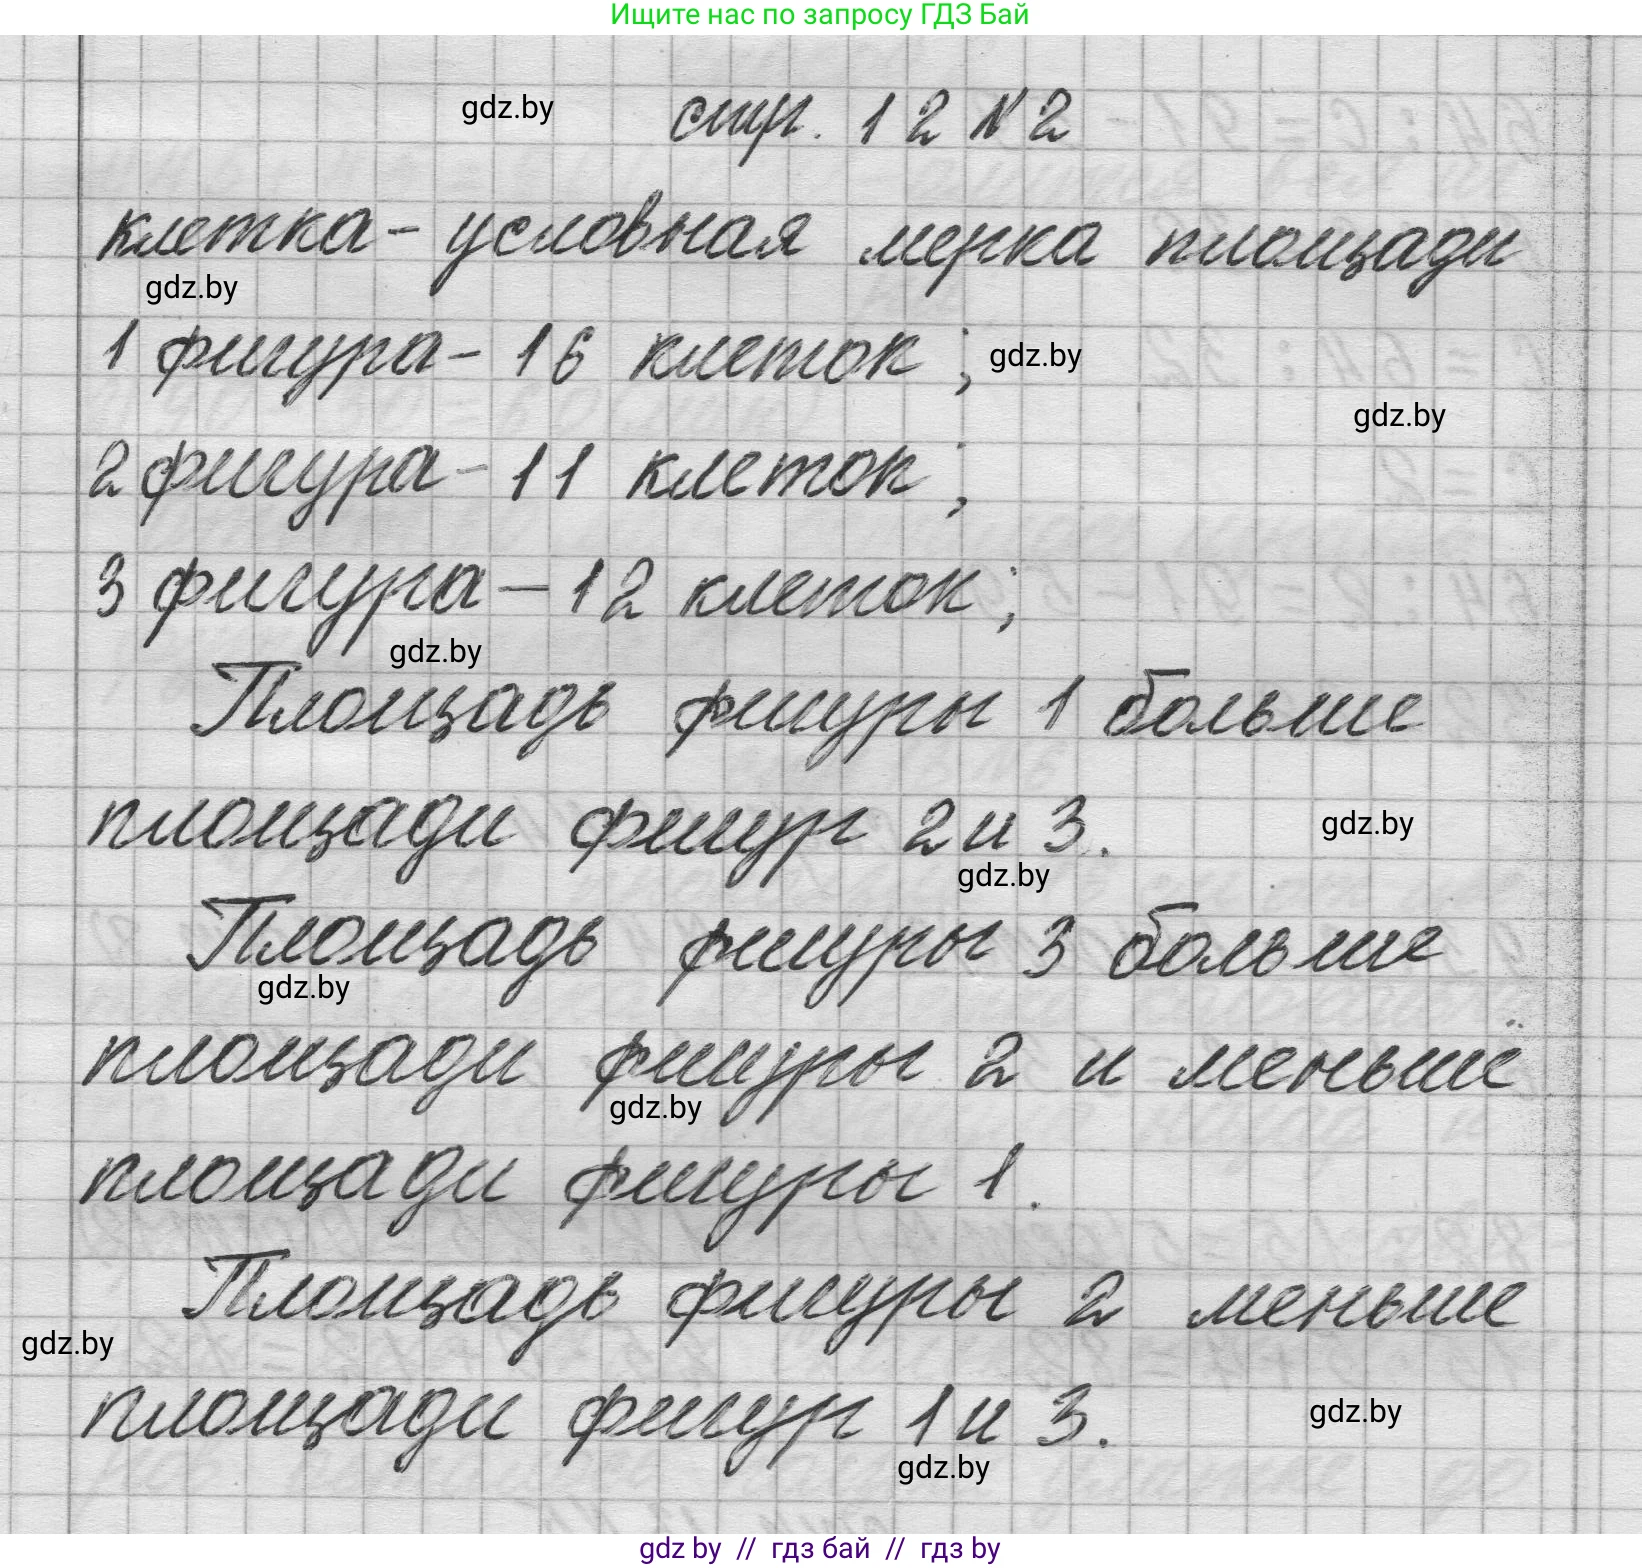 Ищите нас по запросу ГДЗ Бай
gdz.by
стр. 12 №2
клетка - условная мерка площади
gdz.by
1 фигура - 16 клеток; gdz.by
gdz.by
2 фигура - 11 клеток;
3 фигура - 12 клеток;
gdz.by
Площадь фигуры 1 больше
площади фигур 2 и 3. gdz.by
gdz.by
Площадь фигуры 3 больше
gdz.by
площади фигуры 2 и меньше
gdz.by
площади фигуры 1.
Площадь фигуры 2 меньше
gdz.by
площади фигур 1 и 3. gdz.by
gdz.by
gdz by // гдз бай // гдз by